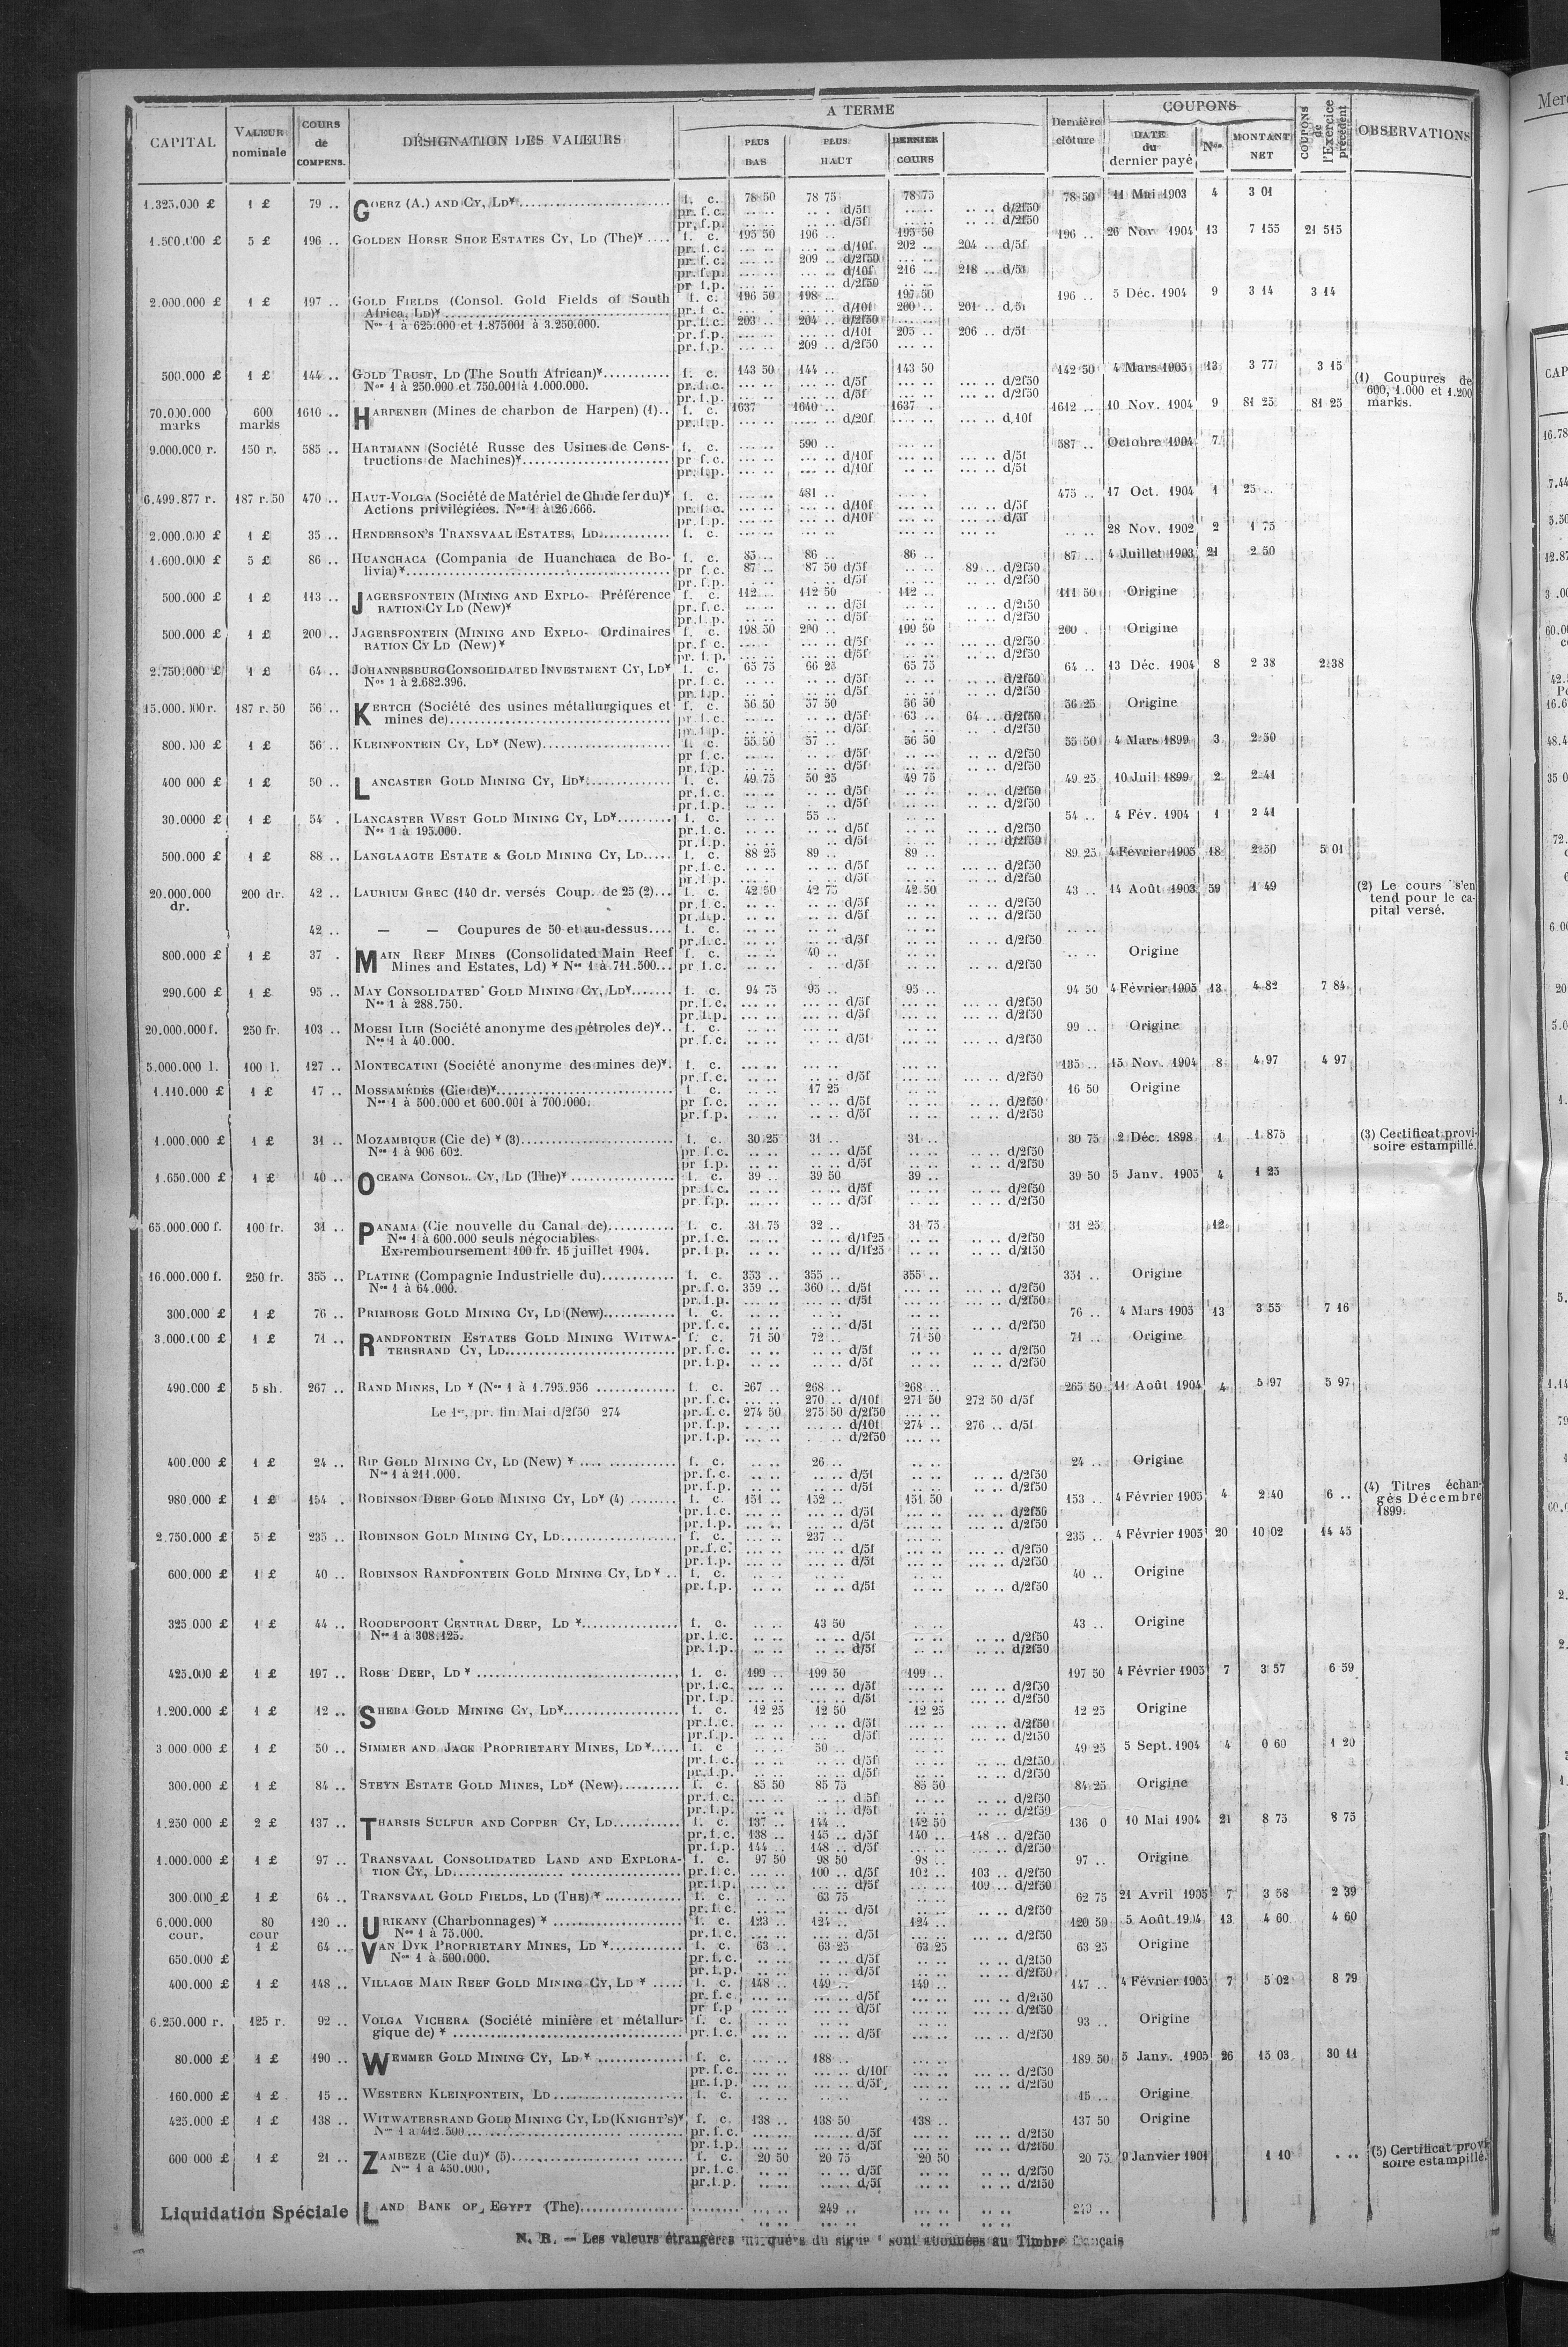 CAPITAL | VALEUR nominale | COURS de COMPENS. | DÉSIGNATION DES VALEURS | A TERME | PLUS BAS | PLUS HAUT | DERNIER COURS | Dernière clôture | COUPONS | DATE du dernier payé | Nos | MONTANT NET | COUPONS de l'Exercice précédent | OBSERVATIONS
1.325.000 £ 1 £ 79 .. GOERZ (A.) AND CY, LD¥ f. c. 78 50 78 75 78 75 78 50 11 Mai 1903 4 3 01
pr. f. c. .. .. .. .. d/5f .. .. .. .. d/2f50
pr. f. p. .. .. .. .. d/5f .. .. .. .. d/2f50
1.500.000 £ 5 £ 196 .. GOLDEN HORSE SHOE ESTATES CY, LD (THE)¥ .... f. c. 195 50 196 .. 195 50 196 .. 26 Nov 1904 13 7 155 21 515
pr. f. c. ... .. ... .. d/10f 202 .. 204 .. d/5f
pr. f. c. ... .. 209 .. d/2f50 ... ..
pr. f. p. ... .. ... .. d/10f 216 .. 218 .. d/5f
pr. f. p. ... .. ... .. d/2f50
2.000.000 £ 1 £ 197 .. GOLD FIELDS (Consol. Gold Fields of South f. c. 196 50 198 .. 197 50 196 .. 5 Déc. 1904 9 3 14 3 14
Africa, LD)¥ pr. f. c. ... .. ... .. d/10f 200 .. 201 .. d/5f
Nos 1 à 625.000 et 1.875001 à 3.250.000. pr. f. c. 203 .. 204 .. d/2f50 ... ..
pr. f. p. ... .. ... .. d/10f 205 .. 206 .. d/5f
pr. f. p. ... .. 209 .. d/2f50 ... ..
500.000 £ 1 £ 144 .. GOLD TRUST, LD (The South African)¥ f. c. 143 50 144 .. 143 50 142 50 4 Mars 1905 13 3 77 3 15
Nos 1 à 250.000 et 750.001 à 1.000.000. pr. f. c. ... .. ... .. d/5f ... .. ... .. d/2f50
pr. f. p. ... .. ... .. d/5f ... .. ... .. d/2f50
(1) Coupures de 600, 1.000 et 1.200 marks.
70.000.000 marks 600 marks 1610 .. HARPENER (Mines de charbon de Harpen) (1).. f. c. 1637 1640 .. 1637 .. 1612 .. 10 Nov. 1904 9 81 25 81 25
pr. f. p. ... .. ... .. d/20f ... .. ... .. d,10f
9.000.000 r. 150 r. 585 .. HARTMANN (Société Russe des Usines de Cons- f. c. ... .. 590 .. ... .. 587 .. Octobre 1904 7
tructions de Machines)¥ pr. f. c. ... .. ... .. d/10f ... .. ... .. d/5f
pr. f. p. ... .. ... .. d/10f ... .. ... .. d/5f
6.499.877 r. 187 r. 50 470 .. HAUT-VOLGA (Société de Matériel de Ch.de fer du)¥ f. c. ... .. 481 .. ... .. 475 .. 17 Oct. 1904 1 25 ..
Actions privilégiées. Nos 1 à 26.666. pr. f. c. ... .. ... .. d/10f ... .. ... .. d/5f
pr. f. p. ... .. ... .. d/10f ... .. ... .. d/5f
2.000.000 £ 1 £ 35 .. HENDERSON'S TRANSVAAL ESTATES, LD f. c. ... .. ... .. ... .. .. .. 28 Nov. 1902 2 1 75
1.600.000 £ 5 £ 86 .. HUANCHACA (Compania de Huanchaca de Bo- f. c. 85 .. 86 .. 86 .. 87 .. 4 Juillet 1903 21 2 50
livia)¥ pr. f. c. 87 .. 87 50 d/5f .. .. 89 .. d/2f50
pr. f. p. .. .. .. .. d/5f .. .. .. .. d/2f50
500.000 £ 1 £ 113 .. JAGERSFONTEIN (MINING AND EXPLO- Préférence f. c. 112 .. 112 50 112 .. 111 50 Origine
RATION CY LD (New)¥ pr. f. c. ... .. .. .. d/5f .. .. .. .. d/2f50
pr. f. p. ... .. .. .. d/5f .. .. .. .. d/2f50
500.000 £ 1 £ 200 .. JAGERSFONTEIN (MINING AND EXPLO- Ordinaires f. c. 198 50 200 .. 199 50 200 . Origine
RATION CY LD (New)¥ pr. f. c. ... .. ... .. d/5f ... .. ... .. d/2f50
pr. f. p. ... .. ... .. d/5f ... .. ... .. d/2f50
2.750.000 £ 1 £ 64 .. JOHANNESBURG CONSOLIDATED INVESTMENT CY, LD¥ f. c. 65 75 66 25 65 75 64 .. 13 Déc. 1904 8 2 38 2 38
Nos 1 à 2.682.396. pr. f. c. .. .. .. .. d/5f .. .. .. .. d/2f50
pr. f. p. .. .. .. .. d/5f .. .. .. .. d/2f50
15.000.000 r. 187 r. 50 56 .. KERTCH (Société des usines métallurgiques et f. c. 56 50 57 50 56 50 56 25 Origine
mines de) pr. f. c. .. .. .. .. d/5f 63 .. 64 .. d/2f50
pr. f. p. .. .. .. .. d/5f .. .. .. .. d/2f50
800.000 £ 1 £ 56 .. KLEINFONTEIN CY, LD¥ (New) f. c. 55 50 57 .. 56 50 55 50 4 Mars 1899 3 2 50
pr. f. c. .. .. .. .. d/5f .. .. .. .. d/2f50
pr. f. p. .. .. .. .. d/5f .. .. .. .. d/2f50
400 000 £ 1 £ 50 .. LANCASTER GOLD MINING CY, LD¥ f. c. 49 75 50 25 49 75 49 25 10 Juil. 1899 2 2 41
pr. f. c. .. .. .. .. d/5f .. .. .. .. d/2f50
pr. f. p. .. .. .. .. d/5f .. .. .. .. d/2f50
30.0000 £ 1 £ 54 . LANCASTER WEST GOLD MINING CY, LD¥ f. c. .. .. 55 .. .. .. 54 .. 4 Fév. 1904 1 2 41
Nos 1 à 195.000. pr. f. c. .. .. .. .. d/5f .. .. .. .. d/2f50
pr. f. p. .. .. .. .. d/5f .. .. .. .. d/2f50
500.000 £ 1 £ 88 .. LANGLAAGTE ESTATE & GOLD MINING CY, LD f. c. 88 25 89 .. 89 .. 89 25 4 Février 1905 18 2 50 5 01
pr. f. c. .. .. .. .. d/5f .. .. .. .. d/2f50
pr. f. p. .. .. .. .. d/5f .. .. .. .. d/2f50
20.000.000 dr. 200 dr. 42 .. LAURIUM GREC (140 dr. versés Coup. de 25 (2)... f. c. 42 50 42 75 42 50 43 .. 14 Août 1903 59 1 49
pr. f. c. .. .. .. .. d/5f .. .. .. .. d/2f50
pr. f. p. .. .. .. .. d/5f .. .. .. .. d/2f50
(2) Le cours s'entend pour le capital versé.
42 .. — — Coupures de 50 et au-dessus.... f. c. .. .. .. .. .. .. .. ..
pr. f. c. .. .. .. .. d/5f .. .. .. .. d/2f50
800.000 £ 1 £ 37 . MAIN REEF MINES (Consolidated Main Reef f. c. .. .. 40 .. .. .. .. .. Origine
Mines and Estates, Ld) ¥ Nos 1 à 711.500... pr f. c. .. .. . .. d/5f .. .. .. .. d/2f50
290.000 £ 1 £ 95 .. MAY CONSOLIDATED GOLD MINING CY, LD¥ f. c. 94 75 95 .. 95 .. 94 50 4 Février 1905 13 4 82 7 84
Nos 1 à 288.750. pr. f. c. ... .. ... .. d/5f ... .. ... .. d/2f50
pr. f. p. ... .. ... .. d/5f ... .. ... .. d/2f50
20.000.000 f. 250 fr. 103 .. MOESI ILIR (Société anonyme des pétroles de)¥.. f. c. ... .. ... .. ... .. 99 .. Origine
Nos 1 à 40.000. pr. f. c. .. .. .. .. d/5f .. .. ... .. d/2f50
5.000.000 l. 100 l. 127 .. MONTECATINI (Société anonyme des mines de)¥. f. c. ... .. ... .. ... .. 135 .. 15 Nov. 1904 8 4 97 4 97
pr. f. c. .. .. .. .. d/5f .. .. ... .. d/2f50
1.110.000 £ 1 £ 17 .. MOSSAMÉDÈS (Cie de)¥ f. c. .. .. 17 25 .. .. 16 50 Origine
Nos 1 à 500.000 et 600.001 à 700.000. pr f. c. .. .. .. .. d/5f .. .. .. .. d/2f50
pr. f. p. .. .. .. .. d/5f .. .. .. .. d/2f50
1.000.000 £ 1 £ 31 .. MOZAMBIQUE (Cie de) ¥ (3) f. c. 30 25 31 .. 31 .. 30 75 2 Déc. 1898 1 1.875
Nos 1 à 906 602. pr. f. c. .. .. .. .. d/5f .. .. .. .. d/2f50
pr f. p. .. .. .. .. d/5f .. .. .. .. d/2f50
(3) Certificat provisoire estampillé.
1.650.000 £ 1 £ 40 .. OCEANA CONSOL. CY, LD (The)¥ f. c. 39 .. 39 50 39 .. 39 50 5 Janv. 1905 4 1 25
pr. f. c. .. .. .. .. d/5f .. .. .. .. d/2f50
pr f. p. .. .. .. .. d/5f .. .. .. .. d/2f50
65.000.000 f. 100 fr. 31 .. PANAMA (Cie nouvelle du Canal de) f. c. 31 75 32 .. 31 75 31 25 12
Nos 1 à 600.000 seuls négociables pr. f. c. .. .. .. .. d/1f25 .. .. .. .. d/2f50
Ex-remboursement 100 fr. 15 juillet 1904. pr. f. p. .. .. .. .. d/1f25 .. .. .. .. d/2f50
16.000.000 f. 250 fr. 355 .. PLATINE (Compagnie Industrielle du) f. c. 353 .. 355 .. 355 .. 351 .. Origine
Nos 1 à 64.000. pr. f. c. 359 .. 360 .. d/5f ... .. ... .. d/2f50
pr. f. p. ... .. ... .. d/5f ... .. ... .. d/2f50
300.000 £ 1 £ 76 .. PRIMROSE GOLD MINING CY, LD (New) f. c. .. .. .. .. .. .. 76 .. 4 Mars 1905 13 3 55 7 16
pr. f. c. .. .. .. .. d/5f .. .. .. .. d/2f50
3.000.000 £ 1 £ 71 .. RANDFONTEIN ESTATES GOLD MINING WITWA- f. c. 71 50 72 .. 71 50 71 .. Origine
TERSRAND CY, LD pr. f. c. .. .. .. .. d/5f .. .. .. .. d/2f50
pr. f. p. .. .. .. .. d/5f .. .. .. .. d/2f50
490.000 £ 5 sh. 267 .. RAND MINES, LD ¥ (Nos 1 à 1.795.956 f. c. 267 .. 268 .. 268 .. 265 50 11 Août 1904 4 5 97 5 97
pr. f. c. ... .. 270 .. d/10f 271 50 272 50 d/5f
Le 1er, pr. fin Mai d/2f50 274 pr. f. c. 274 50 275 50 d/2f50 ... ..
pr. f. p. ... .. ... .. d/10f 274 .. 276 .. d/5f
pr. f. p. ... .. . .. d/2f50 ... ..
400.000 £ 1 £ 24 .. RIP GOLD MINING CY, LD (New) ¥ f. c. .. .. 26 .. .. .. 24 .. Origine
Nos 1 à 211.000. pr. f. c. .. .. .. .. d/5f .. .. .. .. d/2f50
pr. f. p. .. .. .. .. d/5f .. .. .. .. d/2f50
980.000 £ 1 £ 154 . ROBINSON DEEP GOLD MINING CY, LD¥ (4) f. c. 151 .. 152 .. 151 50 153 .. 4 Février 1905 4 2 40 6 ..
pr. f. c. ... .. ... .. d/5f ... .. ... .. d/2f50
pr. f. p. ... .. ... .. d/5f ... .. ... .. d/2f50
(4) Titres échangés Décembre 1899.
2.750.000 £ 5 £ 235 .. ROBINSON GOLD MINING CY, LD f. c. ... .. 237 .. ... .. 235 .. 4 Février 1905 20 10 02 14 45
pr. f. c. ... .. ... .. d/5f ... .. ... .. d/2f50
pr. f. p. ... .. ... .. d/5f ... .. ... .. d/2f50
600.000 £ 1 £ 40 .. ROBINSON RANDFONTEIN GOLD MINING CY, LD ¥ .. f. c. .. .. .. .. .. .. 40 .. Origine
pr. f. p. .. .. .. .. d/5f .. .. .. .. d/2f50
325 000 £ 1 £ 44 .. ROODEPOORT CENTRAL DEEP, LD ¥ f. c. .. .. 43 50 .. .. 43 .. Origine
Nos 1 à 308.125. pr. f. c. .. .. .. .. d/5f .. .. .. .. d/2f50
pr. f. p. .. .. .. .. d/5f .. .. .. .. d/2f50
425.000 £ 1 £ 197 .. ROSE DEEP, LD ¥ f. c. 199 .. 199 50 199 .. 197 50 4 Février 1905 7 3 57 6 59
pr. f. c. ... .. ... .. d/5f ... .. ... .. d/2f50
pr. f. p. ... .. ... .. d/5f ... .. ... .. d/2f50
1.200.000 £ 1 £ 12 .. SHEBA GOLD MINING CY, LD¥ f. c. 12 25 12 50 12 25 12 25 Origine
pr. f. c. .. .. .. .. d/5f .. .. .. .. d/2f50
pr. f. p. .. .. .. .. d/5f .. .. .. .. d/2f50
3 000 000 £ 1 £ 50 .. SIMMER AND JACK PROPRIETARY MINES, LD¥ f. c .. .. 50 .. .. .. 49 25 5 Sept. 1904 4 0 60 1 20
pr. f. c. .. .. .. .. d/5f .. .. .. .. d/2f50
pr. f. p. .. .. .. .. d/5f .. .. .. .. d/2f50
300.000 £ 1 £ 84 .. STEYN ESTATE GOLD MINES, LD¥ (New) f. c. 85 50 85 75 85 50 84 25 Origine
pr. f. c. ... .. ... .. d 5f .. .. .. .. d/2f50
pr. f. p. .. .. .. .. d/5f .. .. .. .. d/2f50
1.250 000 £ 2 £ 137 .. THARSIS SULFUR AND COPPER CY, LD f. c. 137 .. 144 .. 142 50 136 0 10 Mai 1904 21 8 75 8 75
pr. f. c. 138 .. 145 .. d/5f 140 .. 148 .. d/2f50
pr. f. p. 144 .. 148 .. d/5f ... .. ... .. d/2f50
1.000.000 £ 1 £ 97 .. TRANSVAAL CONSOLIDATED LAND AND EXPLORA- f. c. 97 50 98 50 98 .. 97 .. Origine
TION CY, LD pr. f. c. ... .. 100 .. d/5f 102 .. 103 .. d/2f50
pr. f. p. ... .. ... .. d/5f ... .. 109 .. d/2f50
300.000 £ 1 £ 64 .. TRANSVAAL GOLD FIELDS, LD (THE) ¥ f. c. .. .. 63 75 .. .. 62 75 21 Avril 1905 7 3 58 2 39
pr. f. c. .. .. .. .. d/5f .. .. .. .. d/2f50
6.000.000 cour. 80 cour 120 .. URIKANY (Charbonnages) ¥ f. c. 123 .. 124 .. 124 .. 120 50 5 Août 1904 13 4 60 4 60
Nos 1 à 75.000. pr. f. c. ... .. ... .. d/5f ... .. ... .. d/2f50
650.000 £ 1 £ 64 .. VAN DYK PROPRIETARY MINES, LD ¥ f. c. 63 .. 63 25 63 25 63 25 Origine
Nos 1 à 500.000. pr. f. c. .. .. .. .. d/5f .. .. .. .. d/2f50
pr. f. p. .. .. .. .. d/5f .. .. .. .. d/2f50
400.000 £ 1 £ 148 .. VILLAGE MAIN REEF GOLD MINING CY, LD ¥ f. c. 148 .. 149 .. 149 .. 147 .. 4 Février 1905 7 5 02 8 79
pr. f. c ... .. ... .. d/5f ... .. ... .. d/2f50
pr f. p ... .. ... .. d/5f ... .. ... .. d/2f50
6.250.000 r. 125 r. 92 .. VOLGA VICHERA (Société minière et métallur- f. c. ... .. ... .. ... .. 93 .. Origine
gique de) ¥ pr. f. c. ... .. ... .. d/5f ... .. ... .. d/2f50
80.000 £ 1 £ 190 .. WEMMER GOLD MINING CY, LD ¥ f. c. ... .. 188 .. ... .. 189 50 5 Janv. 1905 26 15 03 30 11
pr. f. c. ... .. ... .. d/10f ... .. ... .. d/2f50
pr. f. p. ... .. ... .. d/5f ... .. ... .. d/2f50
160.000 £ 1 £ 15 .. WESTERN KLEINFONTEIN, LD f. c. .. .. .. .. .. .. 15 .. Origine
425.000 £ 1 £ 138 .. WITWATERSRAND GOLD MINING CY, LD (KNIGHT'S)¥ f. c. 138 .. 138 50 138 .. 137 50 Origine
Nos 1 à 412.500 pr. f. c. ... .. ... .. d/5f ... .. ... .. d/2f50
pr. f. p. ... .. ... .. d/5f ... .. ... .. d/2f50
600 000 £ 1 £ 21 .. ZAMBÈZE (Cie du)¥ (5) f. c. 20 50 20 75 20 50 20 75 9 Janvier 1901 1 10 . ..
Nos 1 à 450.000, pr. f. c .. .. .. .. d/5f .. .. .. .. d/2f50
pr. f. p. .. .. .. .. d/5f .. .. .. .. d/2f50
(5) Certificat provisoire estampillé.
Liquidation Spéciale LAND BANK OF EGYPT (The) ... .. 249 .. ... .. 249 ..
N. B. — Les valeurs étrangères marquées du signe ¥ sont abonnées au Timbre français
Merc
CAP